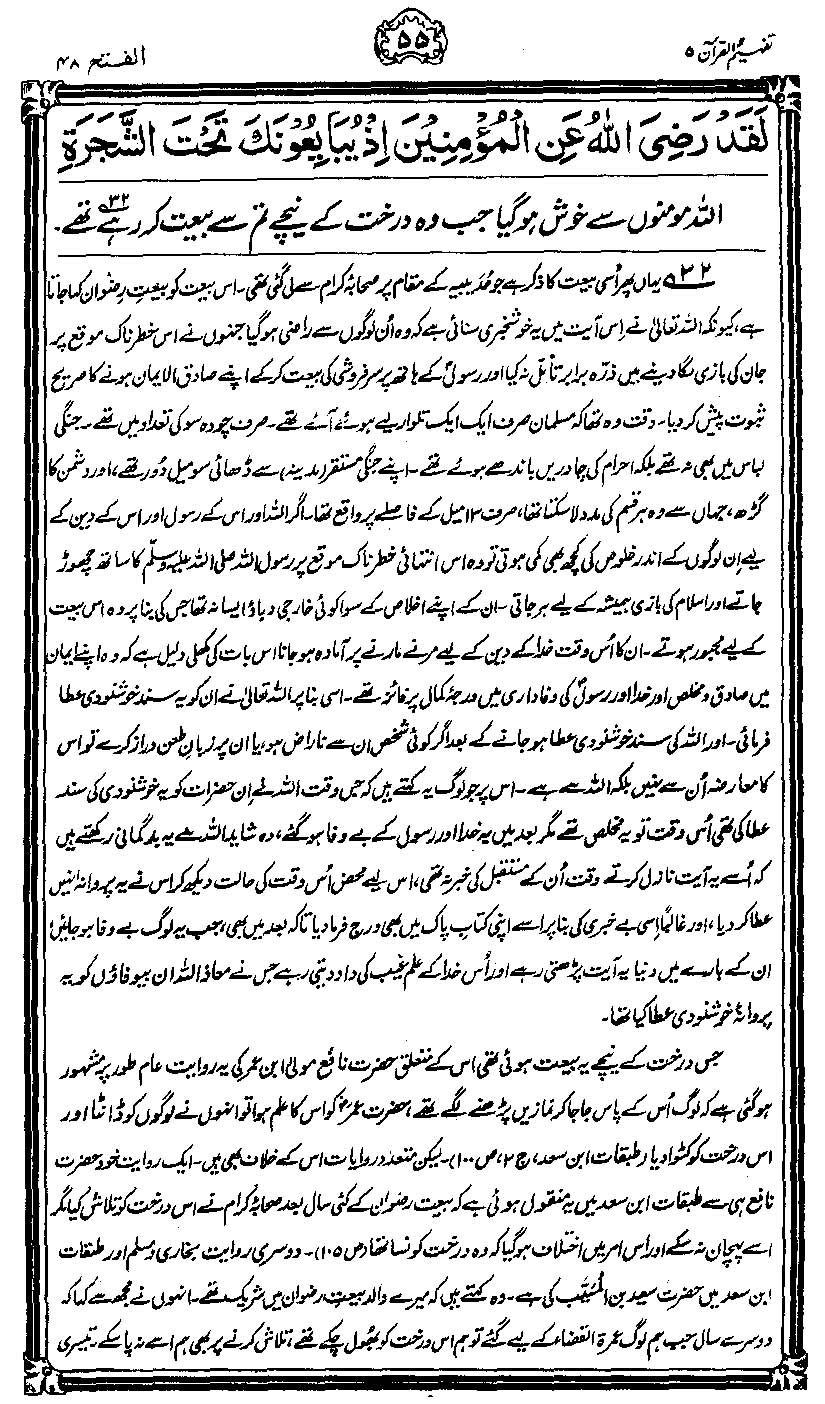 تفہیم القرآن ۵
۵۵
الفتح ۴۸
لَقَدْ رَضِیَ اللّٰهُ عَنِ الْمُؤْمِنِیْنَ اِذْ یُبَایِعُوْنَكَ تَحْتَ الشَّجَرَةِ
اللہ مومنوں سے خوش ہوگیا جب وہ درخت کے نیچے تم سے بیعت کر رہے تھے ۳۲۔
۳۲ یہاں پھر اُسی بیعت کا ذکر ہے جو حُدَیبیہ کے مقام پر صحابۂ کرام سے لی گئی تھی۔ اس بیعت کو بیعتِ رِضوان کہا جاتا
ہے، کیونکہ اللہ تعالیٰ نے اِس آیت میں یہ خوشخبری سنائی ہے کہ وہ اُن لوگوں سے راضی ہوگیا جنہوں نے اس خطرناک موقع پر
جان کی بازی لگا دینے میں ذرّہ برابر تأمل نہ کیا اور رسولؐ کے ہاتھ پر سرفروشی کی بیعت کرکے اپنے صادق الایمان ہونے کا صریح
ثبوت پیش کر دیا۔ وقت وہ تھا کہ مسلمان صرف ایک ایک تلوار لیے ہوئے آئے تھے۔ صرف چودہ سو کی تعداد میں تھے۔ جنگی
لباس میں بھی نہ تھے بلکہ احرام کی چادریں باندھے ہوئے تھے۔ اپنے جنگی مستقر (مدینہ) سے ڈھائی سو میل دُور تھے، اور دشمن کا
گڑھ، جہاں سے وہ ہر قسم کی مدد لا سکتا تھا، صرف ۱۳ میل کے فاصلے پر واقع تھا۔ اگر اللہ اور اس کے رسول اور اس کے دین کے
لیے اِن لوگوں کے اندر خلوص کی کچھ بھی کمی ہوتی تو وہ اس انتہائی خطرناک موقع پر رسول اللہ صلی اللہ علیہ وسلم کا ساتھ چھوڑ
جاتے اور اسلام کی بازی ہمیشہ کے لیے ہر جاتی۔ ان کے اپنے اخلاص کے سوا کوئی خارجی دباؤ ایسا نہ تھا جس کی بنا پر وہ اس بیعت
کے لیے مجبور ہوتے۔ ان کا اُس وقت خدا کے دین کے لیے مرنے مارنے پر آمادہ ہو جانا اس بات کی کھلی دلیل ہے کہ وہ اپنے ایمان
میں صادق و مخلص اور خدا اور رسولؐ کی وفاداری میں درجۂ کمال پر فائز تھے۔ اسی بنا پر اللہ تعالیٰ نے ان کو یہ سند خوشنودی عطا
فرمائی۔ اور اللہ کی سند خوشنودی عطا ہو جانے کے بعد اگر کوئی شخص ان سے ناراض ہو، یا ان پر زبانِ طعن دراز کرے تو اس
کا معارضہ اُن سے نہیں بلکہ اللہ سے ہے۔ اس پر جو لوگ یہ کہتے ہیں کہ جس وقت اللہ نے اِن حضرات کو یہ خوشنودی کی سند
عطا کی تھی اُس وقت تو یہ مخلص تھے مگر بعد میں یہ خدا اور رسول کے بے وفا ہو گئے، وہ شاید اللہ سے یہ بدگمانی رکھتے ہیں
کہ اُسے یہ آیت نازل کرتے وقت اُن کے مستقبل کی خبر نہ تھی، اس لیے محض اُس وقت کی حالت دیکھ کر اس نے یہ پروانہ انہیں
عطا کر دیا، اور غالباً اِسی بے خبری کی بنا پر اسے اپنی کتابِ پاک میں بھی درج فرما دیا تاکہ بعد میں بھی، جب یہ لوگ بے وفا ہو جائیں،
ان کے بارے میں دنیا یہ آیت پڑھتی رہے اور اُس خدا کے علمِ غیب کی داد دیتی رہے جس نے معاذ اللہ ان بیوفاؤں کو یہ
پروانۂ خوشنودی عطا کیا تھا۔
جس درخت کے نیچے یہ بیعت ہوئی تھی اس کے متعلق حضرت نافع مولیٰ ابن عمر کی یہ روایت عام طور پر مشہور
ہو گئی ہے کہ لوگ اُس کے پاس جا جا کر نمازیں پڑھنے لگے تھے، حضرت عمرؓ کو اس کا علم ہوا تو انہوں نے لوگوں کو ڈانٹا اور
اس درخت کو کٹوا دیا (طبقات ابن سعد، ج ۲، ص ۱۰۰)۔ لیکن متعدد روایات اس کے خلاف بھی ہیں۔ ایک روایت خود حضرت
نافع ہی سے طبقات ابن سعد میں یہ منقول ہوئی ہے کہ بیعت رضوان کے کئی سال بعد صحابۂ کرام نے اس درخت کو تلاش کیا مگر
اسے پہچان نہ سکے اور اس امر میں اختلاف ہوگیا کہ وہ درخت کونسا تھا (ص ۱۰۵)۔ دوسری روایت بخاری و مسلم اور طبقات
ابن سعد میں حضرت سعید بن المُسَیَّب کی ہے۔ وہ کہتے ہیں کہ میرے والد بیعتِ رضوان میں شریک تھے۔ انہوں نے مجھ سے کہا کہ
دوسرے سال جب ہم لوگ عمرۃ القضاء کے لیے گئے تو ہم اس درخت کو بھول چکے تھے، تلاش کرنے پر بھی ہم اسے نہ پا سکے۔ تیسری